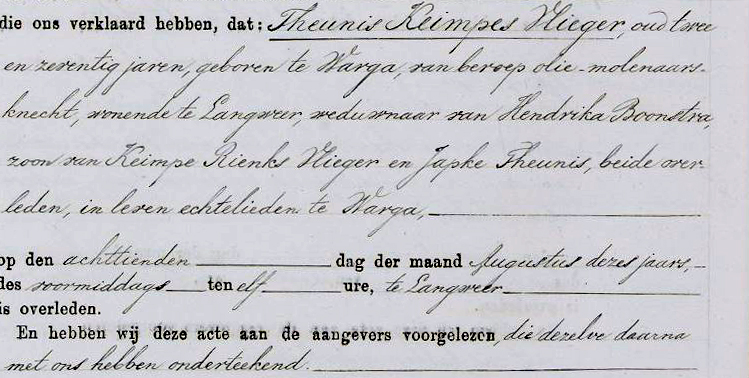 die ons verklaard hebben, dat: Theunis Keimpes Vlieger, oud twee
en zeventig jaren, geboren te Warga, van beroep olie-molenaars-
knecht, wonende te Langweer, weduwnaar van Hendrika Boonstra,
zoon van Keimpe Rienks Vlieger en Japke Theunis, beide over-
leden, in leven echtelieden te Warga,
op den achttienden dag der maand Augustus dezes jaars,
des voormiddags ten elf ure, te Langweer
is overleden.
En hebben wij deze acte aan de aangevers voorgelezen, die dezelve daarna
met ons hebben onderteekend.